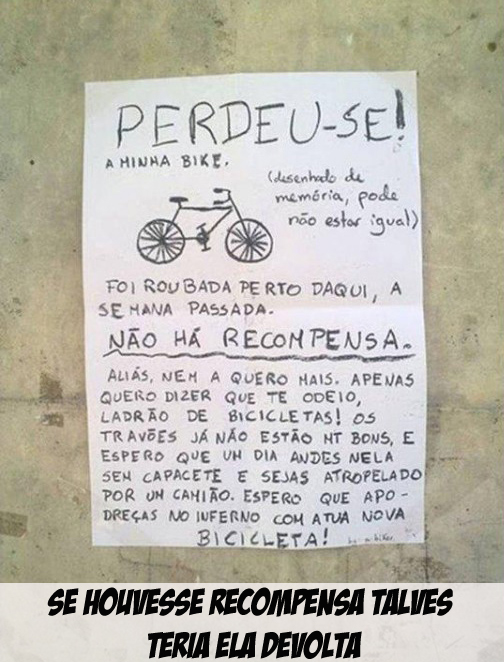 PERDEU-SE!
A MINHA BIKE.
(desenhado de
memória, pode
não estar igual)
FOI ROUBADA PERTO DAQUI, A
SEMANA PASSADA.
NÃO HÁ RECOMPENSA.
ALIÁS, NEM A QUERO MAIS. APENAS
QUERO DIZER QUE TE ODEIO,
LADRÃO DE BICICLETAS! OS
TRAVÕES JÁ NÃO ESTÃO MT BONS, E
ESPERO QUE UM DIA ANDES NELA
SEM CAPACETE E SEJAS ATROPELADO
POR UM CAMIÃO. ESPERO QUE APO-
DREÇAS NO INFERNO COM A TUA NOVA
BICICLETA!
SE HOUVESSE RECOMPENSA TALVES
TERIA ELA DEVOLTA